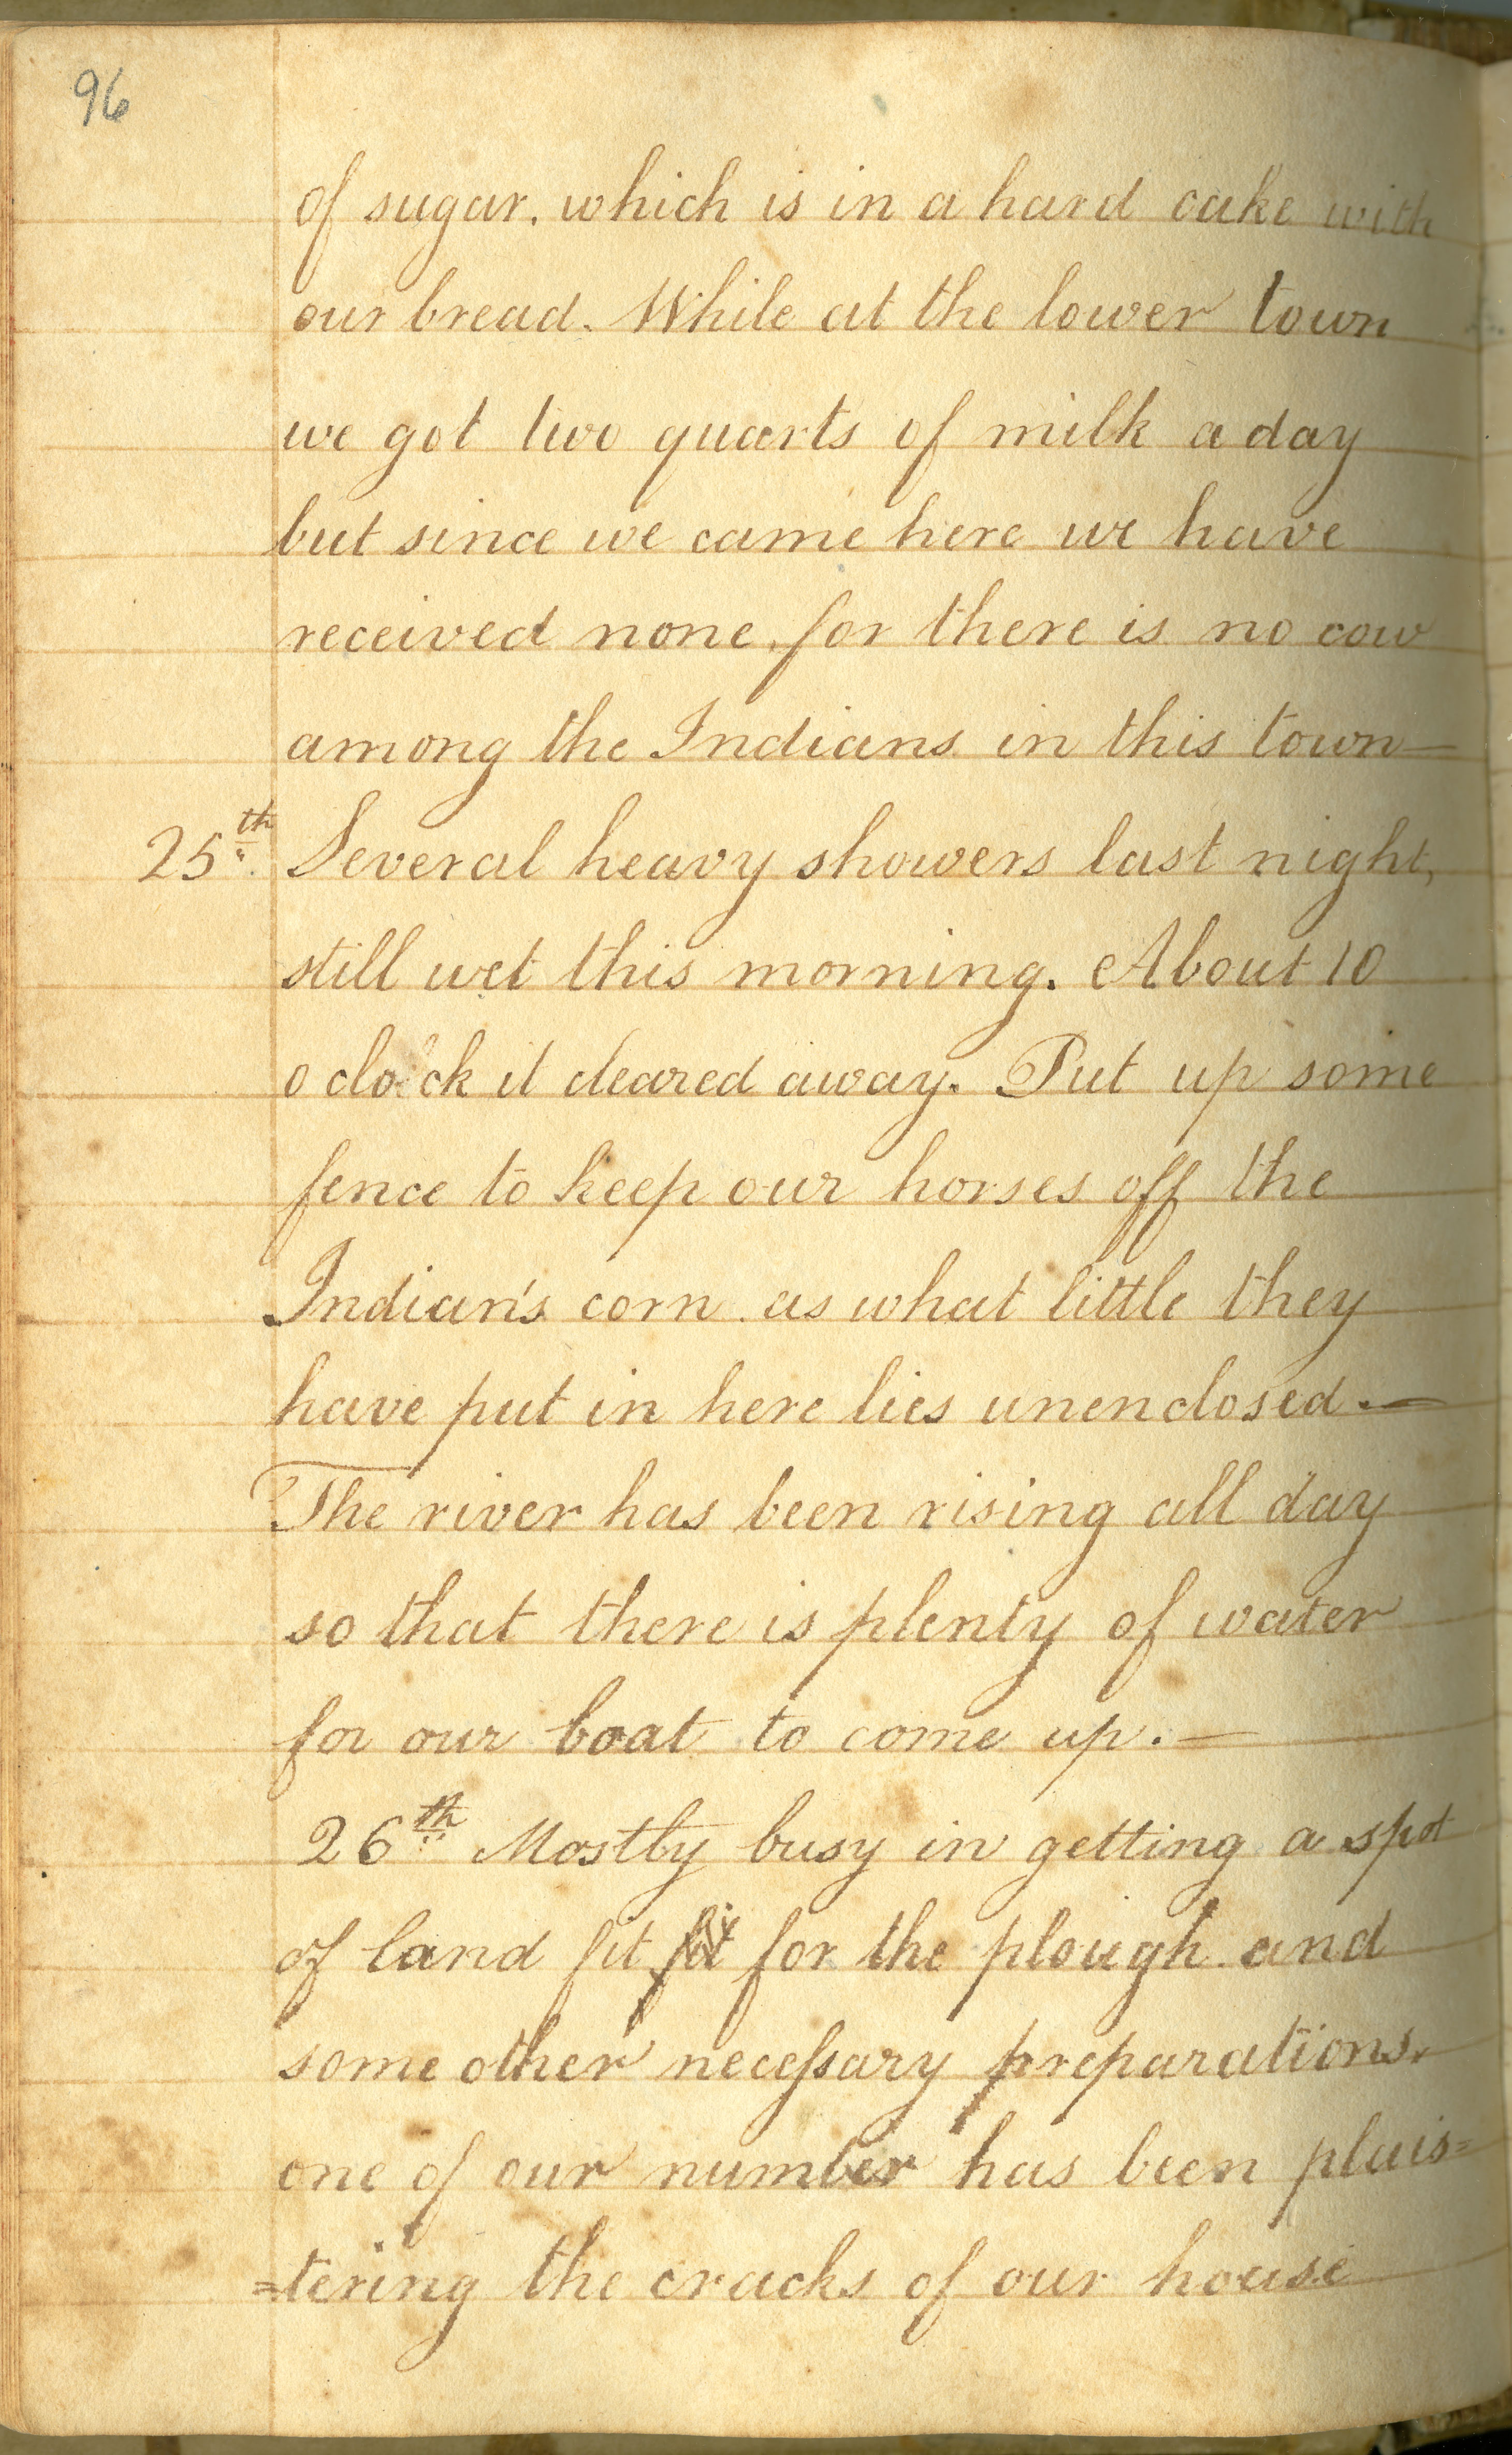 96
of sugar. which is in a hard cake with
our bread. While at the lower town
we got two quarts of milk a day
but since we came here we have
received none, for there is no cow
among the Indians in this town—
25th. Several heavy showers last night,
still wet this morning. About 10
o clock it cleared away. Put up some
fence to keep our horses off the
Indian's corn as what little they
have put in here lies unenclosed.—
The river has been rising all day
so that there is plenty of water
for our boat to come up.—
26th Mostly busy in getting a spot
of land fit fit for the plough and
some other neceſsary preparations.
one of our number has been plais=
=tering the cracks of our house